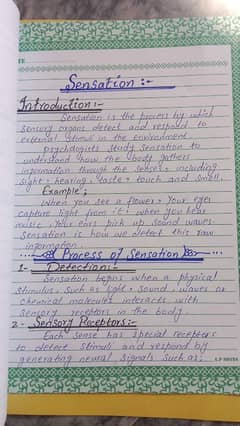 Sensation :-
Introduction :-
Sensation is the process by which
sensory organs detect and respond to
external stimuli in the environment
psychologists study sensation to
understand how the body gathers
information through the senses, including
sight, hearing, taste, touch and smell.
Example;
When you see a flower, your eyes
capture light from it. when you hear
music, your ears pick up sound waves.
Sensation is how we detect this raw
information.
Process of Sensation
1- Detections:-
Sensation begins when a physical
stimulus, such as light, sound, waves or
chemical molecules interacts with
sensory receptors in the body.
2- Sensory Receptors:-
Each sense has special receptors
to detect stimuli and respond by
generating neural signals such as;